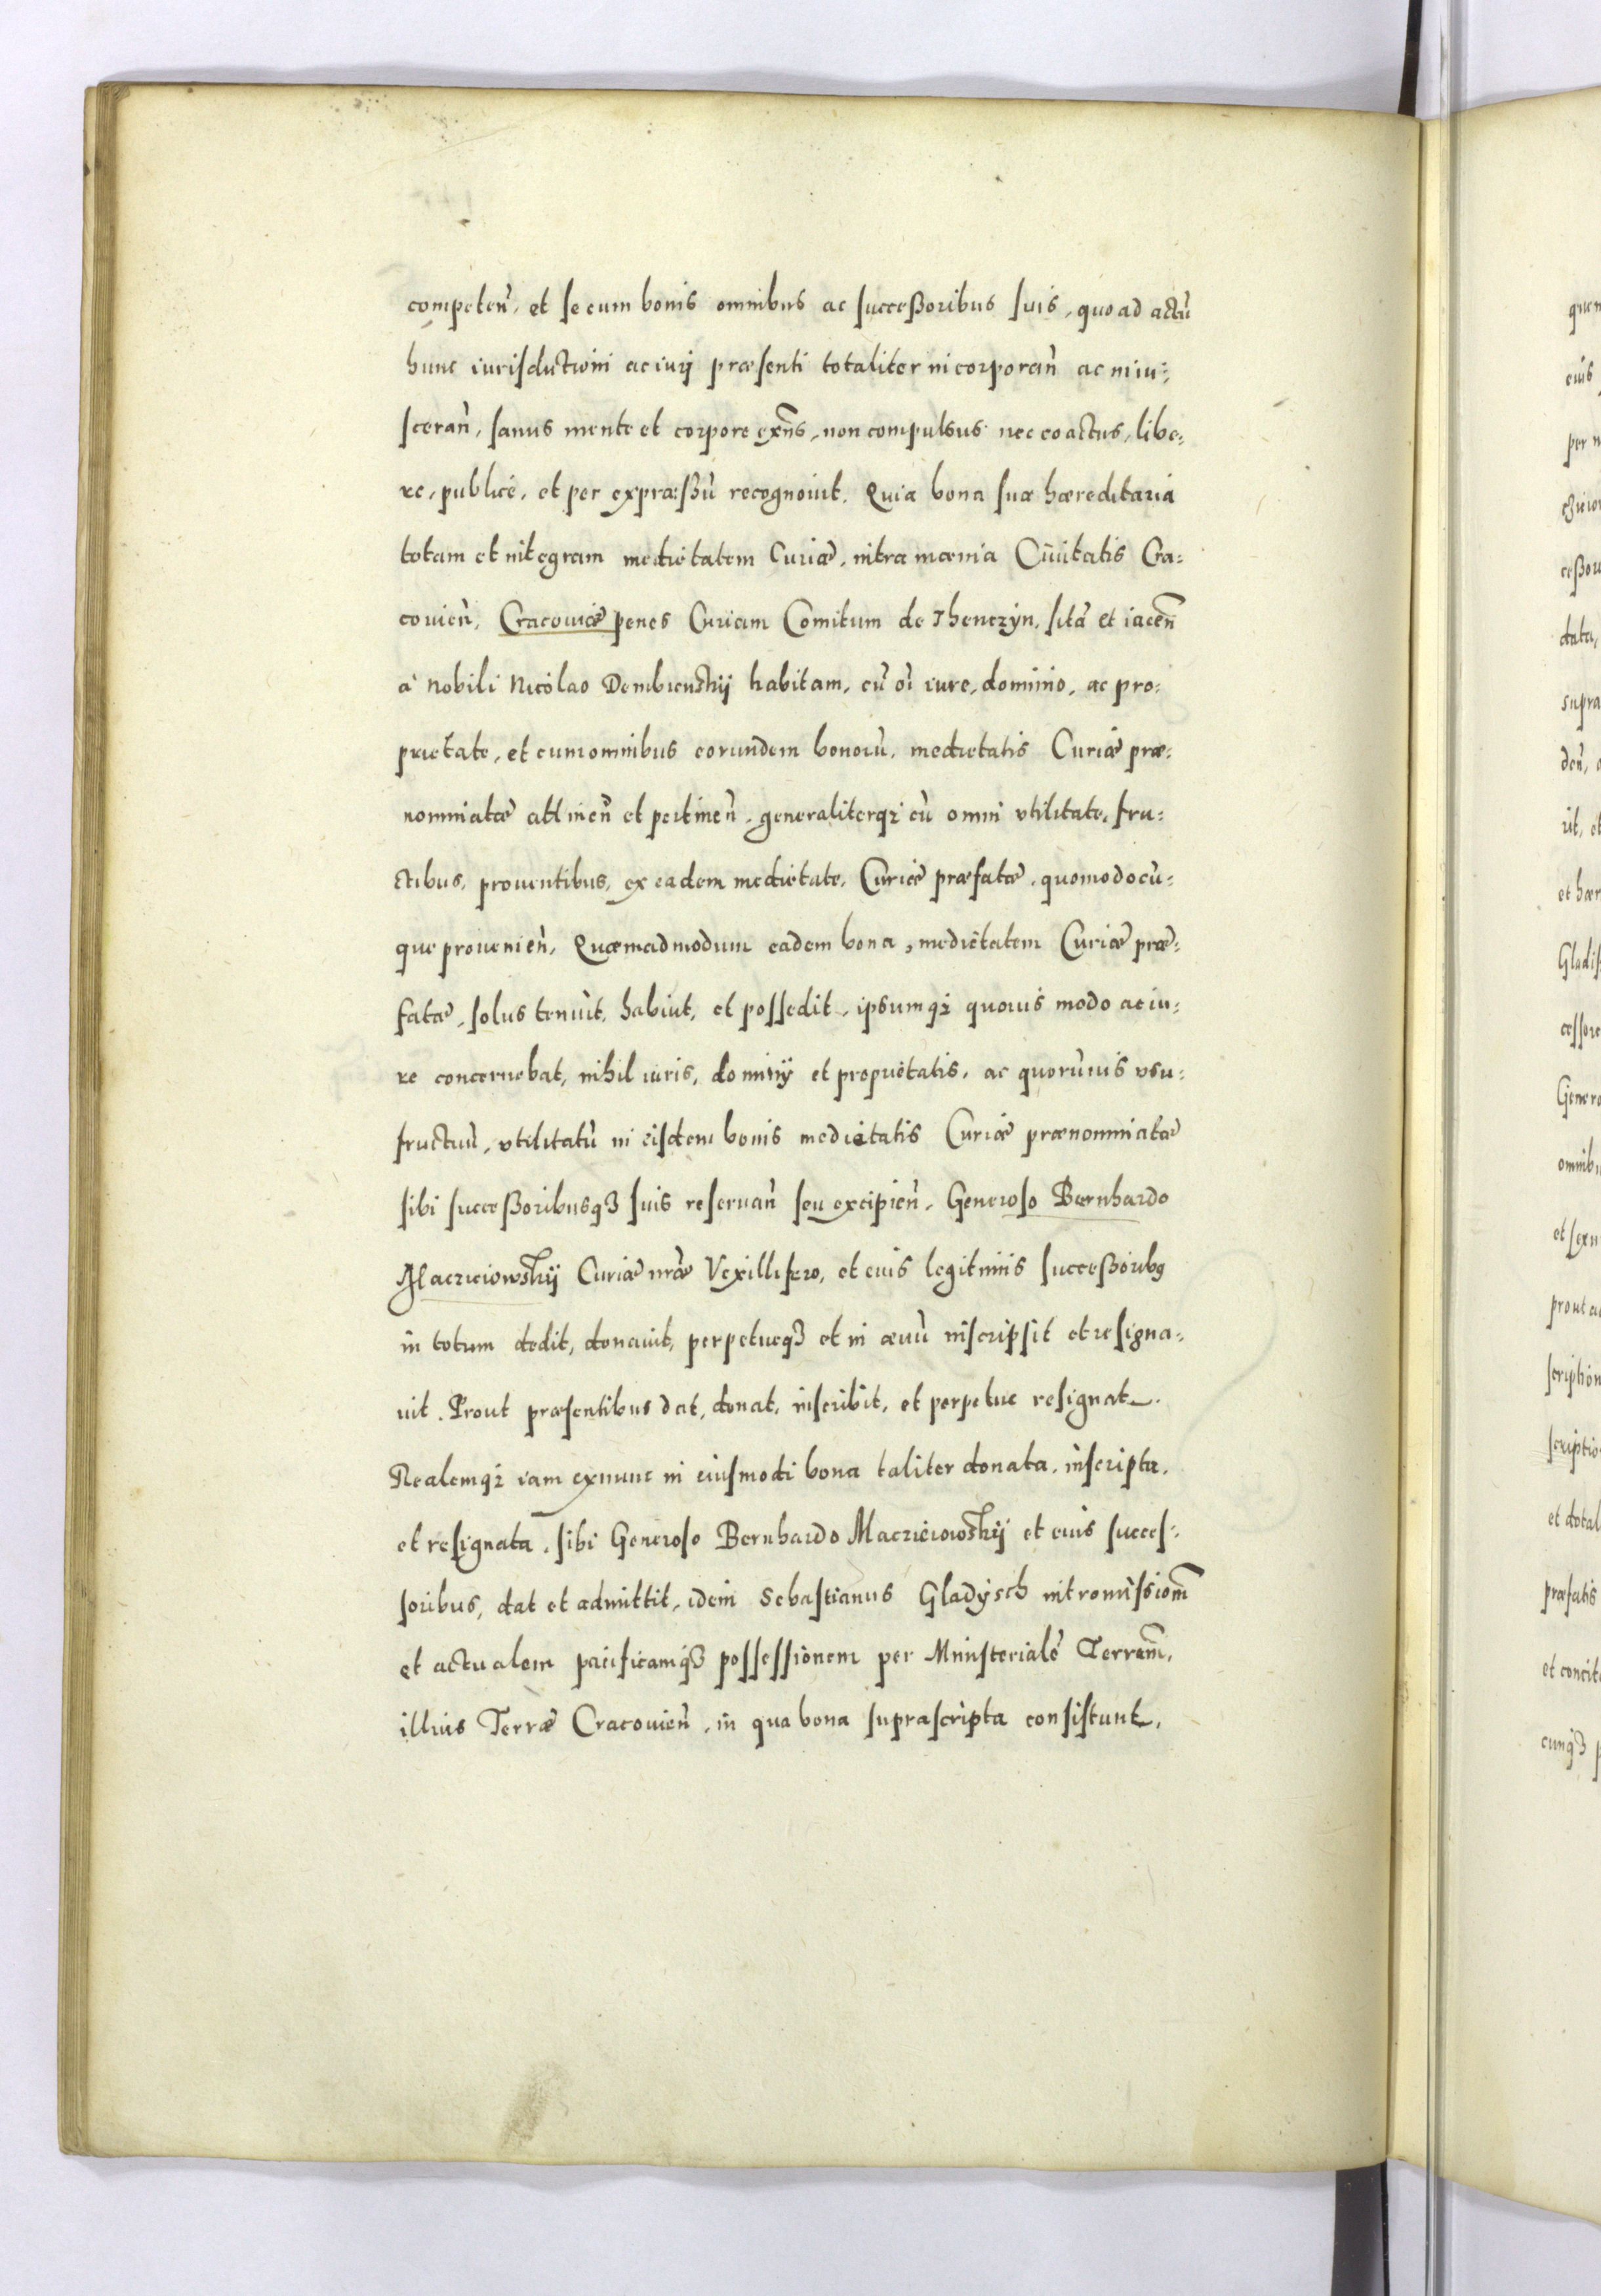 competen̄, et se cum bonis omnibus ac succeßoribus suis, quo ad actū
hunc iurisdictioni ac iurj præsenti totaliter incorporan̄ ac inui:
sceran̄, sanus mente et corpore exn̄s, non compulsus nec coactus, libe:
re, publicè, et per expræßū recognouit. Quia bona sua hæreditaria
totam et integram medietatem Curiæ, intra mœnia Ciuitatis Cra:
couien̄, Cracouiæ penes Curiam Comitum de Thenczÿn, sitā et iacen̄
à nobili Nicolao Dembienskÿ habitam, cū oī iure, dominio, ac pro:
prietate, et cum omnibus eorundem bonorū, medietatis Curiæ præ:
nominatæ attinen̄ et pertinen̄, generaliterq; cū omni vtilitate, fru:
ctibus, prouentibus, ex eadem medietate, Curiæ præfatæ, quomodocū:
que prouenien̄, Quæmadmodum eadem bona, medietatem Curiæ præ:
fatæ, solus tenuit, habuit, et possedit, ipsumq; quouis modo ac iu:
re concernebat, nihil iuris, dominÿ et proprietatis, ac quorūuis vsu:
fructuū, vtilitatū in eisdem bonis medietatis Curiæ prænominatæ
sibi succeßoribusq3 suis reseruan̄ seu excipien̄, Generoso Bernhardo
Maczieiowskÿ Curiæ nr̄æ Vexillifero, et eius legitimis succeßorib9
in totum dedit, donauit, perpetueq3 et in æuū inscripsit et resigna:
uit. Prout præsentibus dat, donat, inscribit, et perpetue resignat.
Realemq; iam exnunc in eiusmodi bona taliter donata, inscripta,
et resignata, sibi Generoso Bernhardo Maczieiowskÿ et eius succes:
soribus, dat et admittit, idem Sebastianus Gladÿsch intromissionē
et actualem pacificamq3 possessionem per Ministerialē Terrem̄,
illius Terræ Cracouien̄, in qua bona suprascripta consistunt,